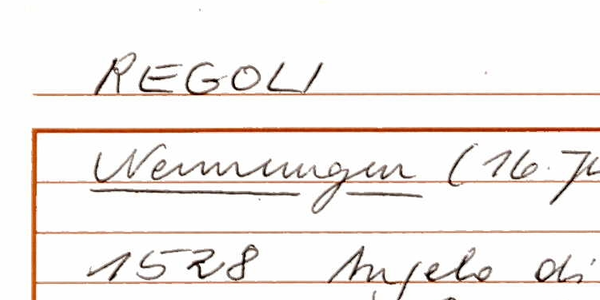 REGOLI
Nennungen (16. Ju
1528 Angelo di